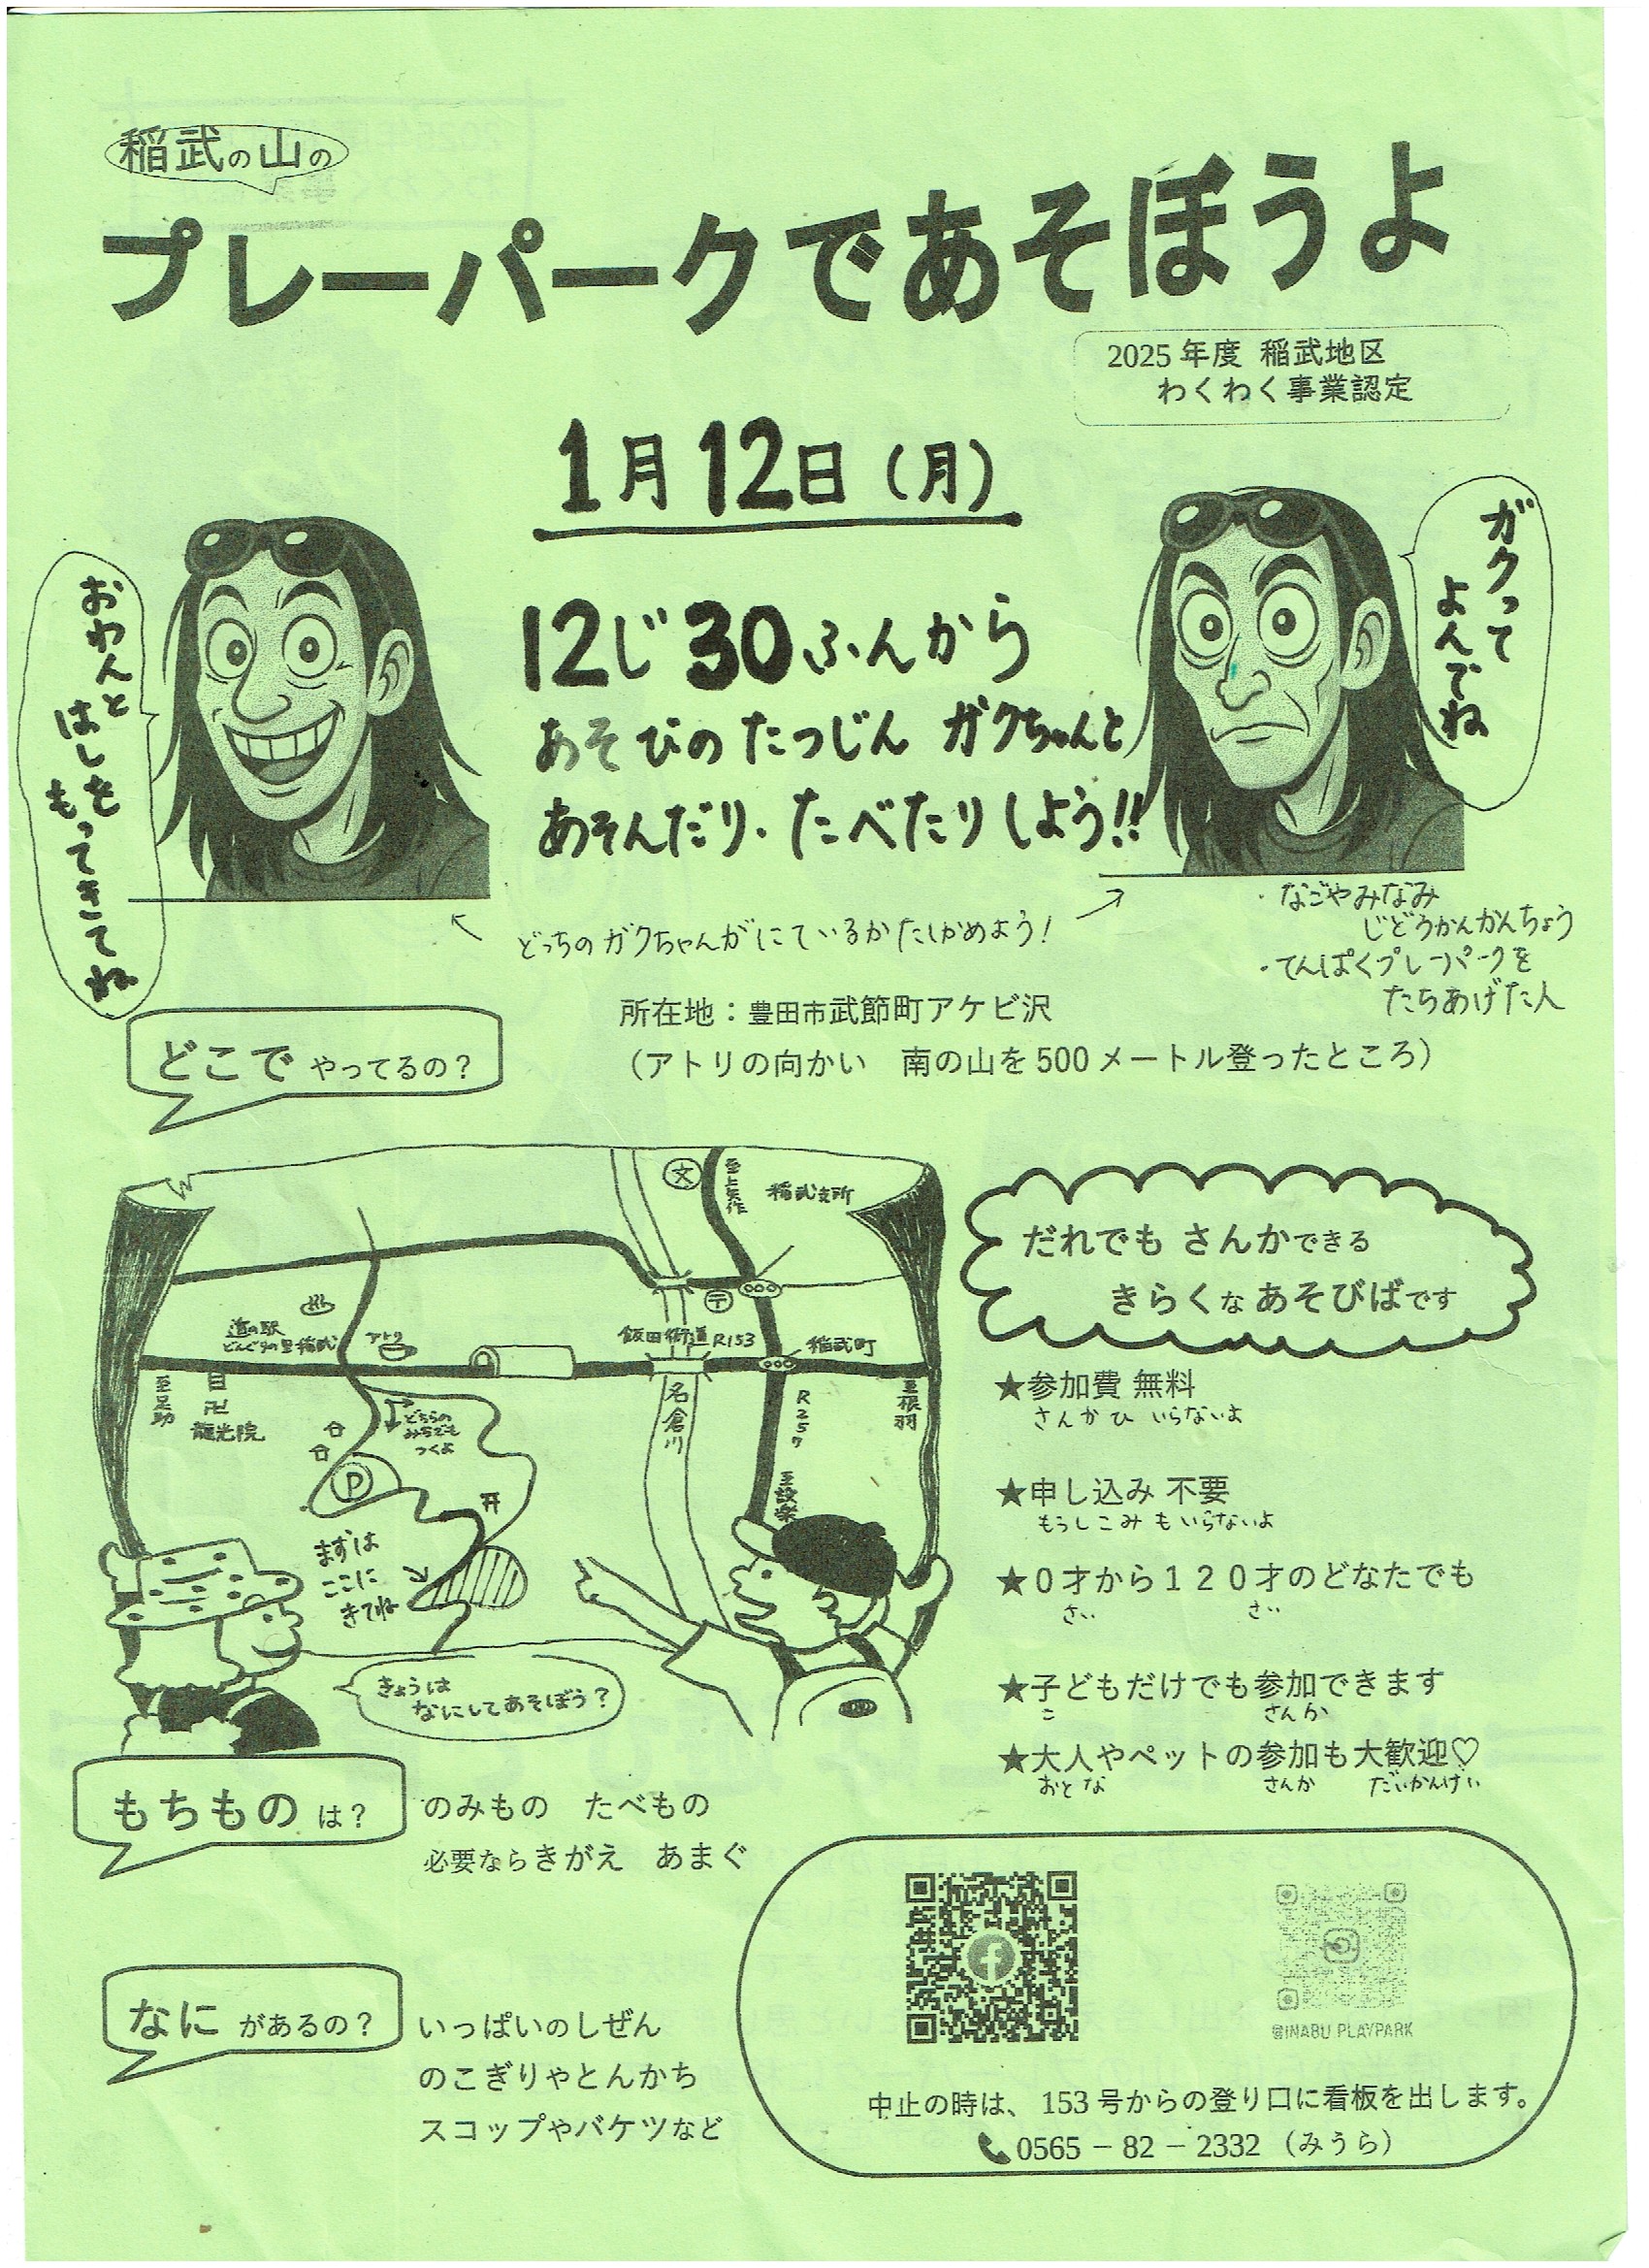 稲武の山の
プレーパークであそぼうよ
2025年度 稲武地区
わくわく事業認定
1月12日(月)
おわんと
はしを
もってきてね
ガクって
よんでね
12じ30ふんから
あそびのたつじん ガクちゃんと
あそんだり・たべたりしよう!!
どっちのガクちゃんがにているかたしかめよう!
・なごやみなみ
じどうかんかんちょう
・てんぱくプレーパークを
たちあげた人
どこで やってるの?
所在地:豊田市武節町アケビ沢
(アトリの向かい 南の山を500メートル登ったところ)
文
至上矢作
稲武支所
〒
道の駅
どんぐりの里稲武
アトリ
飯田街道R153
稲武町
至足助
卍
龍光院
どちらの
みちでも
つくよ
名倉川
R257
至設楽
至根羽
P
まずは
ここに
きてね
きょうは
なにしてあそぼう?
だれでも さんかできる
きらくな あそびばです
★参加費 無料
さんかひ いらないよ
★申し込み 不要
もうしこみ もいらないよ
★0才から120才のどなたでも
さい さい
★子どもだけでも参加できます
こ さんか
★大人やペットの参加も大歓迎♡
おとな さんか だいかんげい
もちもの は?
のみもの たべもの
必要ならきがえ あまぐ
なに があるの?
いっぱいのしぜん
のこぎりゃとんかち
スコップやバケツなど
@INABU PLAYPARK
中止の時は、153号からの登り口に看板を出します。
📞0565-82-2332(みうら)